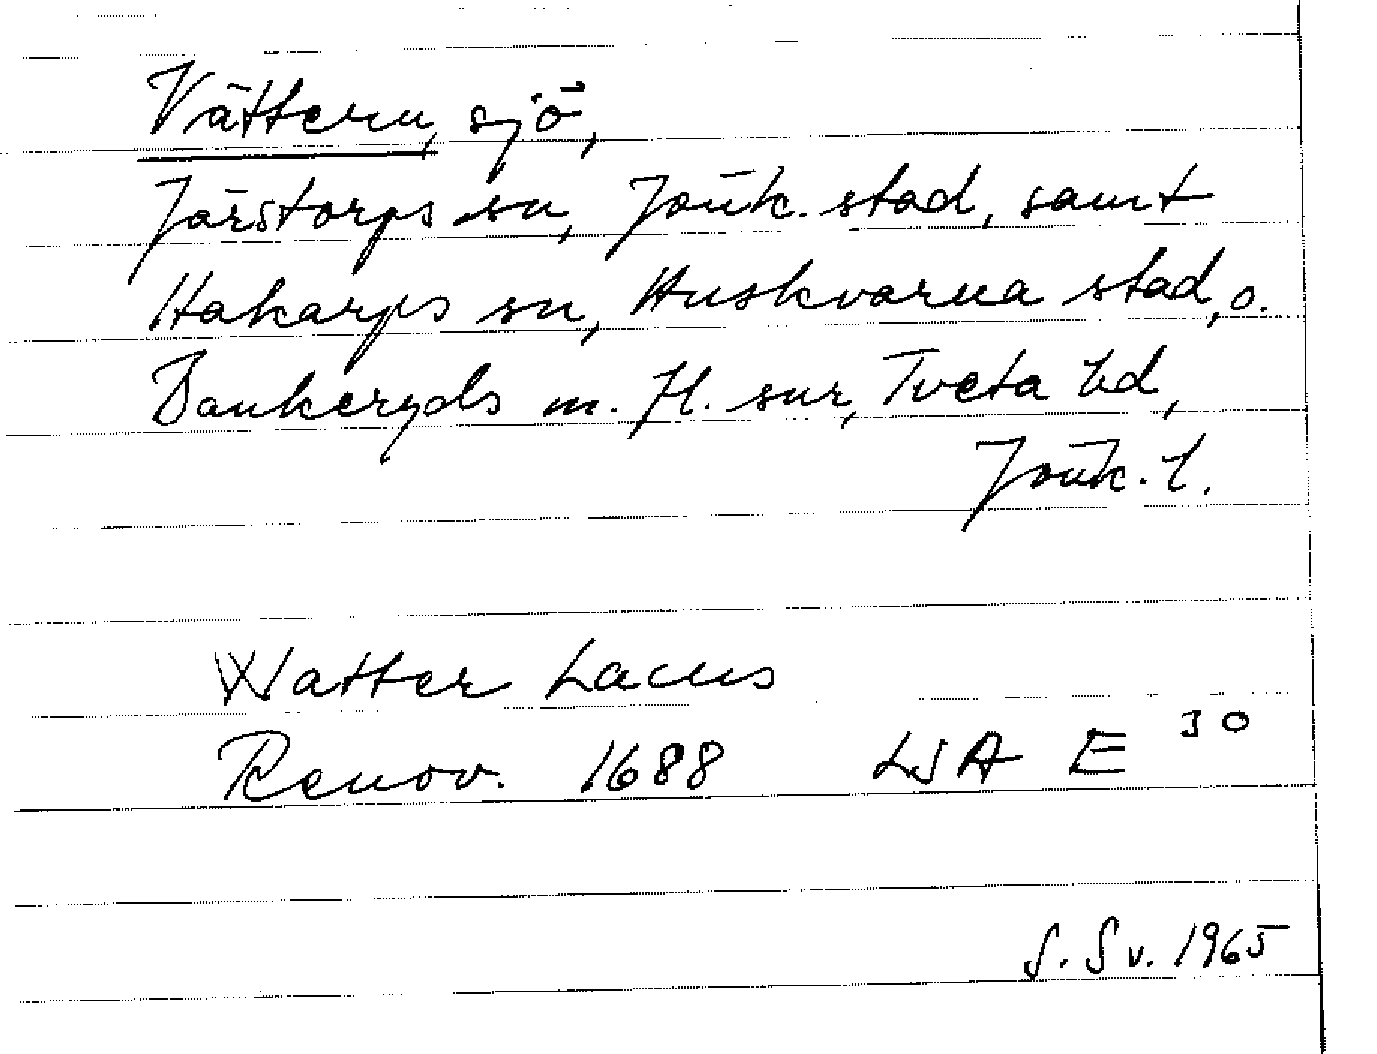 Vättern, sjö,
Järstorps sn, Jönk. stad, samt
Hakarps sn, Huskvarna stad, o.
Bankeryds m. fl. snr, Tveta hd,
Jönk. l.
Watter Lacus
Renov. 1688 LSA E 30
S. Sv. 1965